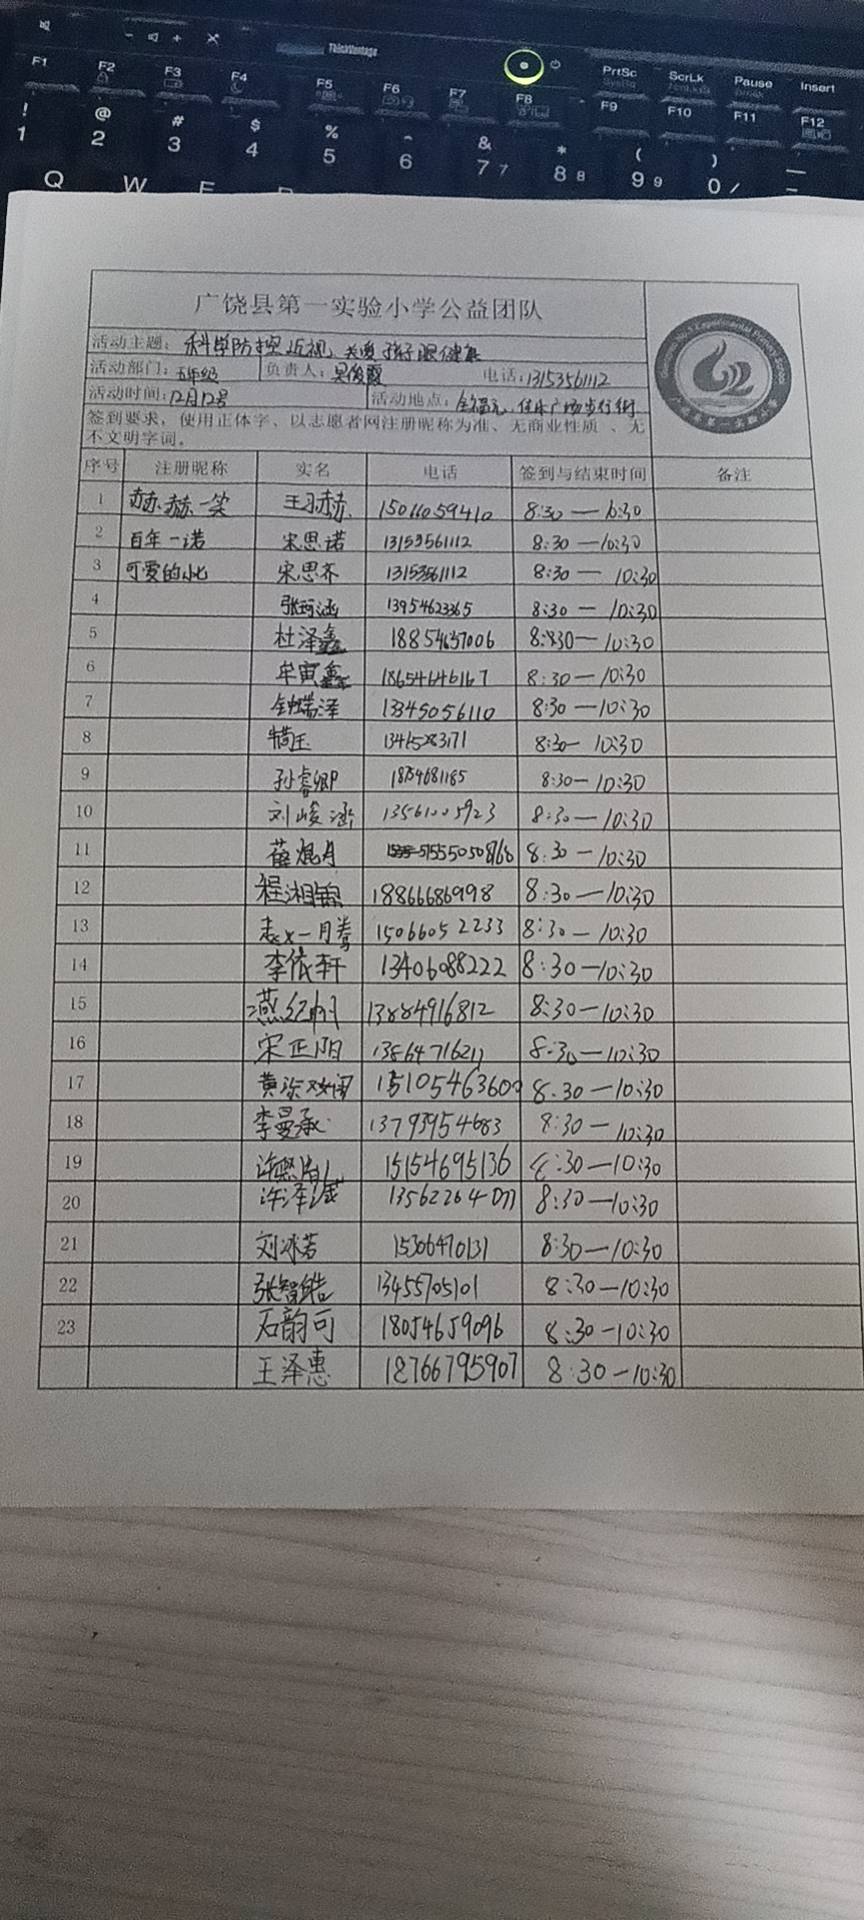 ThinkVantage
F1 F2 F3 F4 F5 F6 F7 F8 F9 F10 F11 F12
PrtSc ScrLk Pause Insert
! @ # $ % & * ( )
1 2 3 4 5 6 7 7 8 8 9 9 0 /
Q W E
广饶县第一实验小学公益团队
活动主题：科学防控近视，关爱孩子眼健康
活动部门：五年级 负责人：吴俊霞 电话：13153561112
活动时间：12月12号 活动地点：全福元、佳乐广场步行街
签到要求，使用正体字、以志愿者网注册昵称为准、无商业性质、无
不文明字词。
序号 注册昵称 实名 电话 签到与结束时间 备注
1 赫赫一笑 王赫 15011059410 8:30—10:30
2 百年一诺 宋思诺 13153561112 8:30—10:30
3 可爱的 宋思齐 13153561112 8:30—10:30
4 张珂涵 13954623365 8:30—10:30
5 杜泽鑫 18854637006 8:30—10:30
6 牟寅鑫 18654646167 8:30—10:30
7 瑞泽 13345056110 8:30—10:30
8 13415283171 8:30—10:30
9 孙睿卿 18754681185 8:30—10:30
10 刘峻涵 13561005923 8:30—10:30
11 8:30—10:30
12 程湘锦 18866686998 8:30—10:30
13 15066052233 8:30—10:30
14 李依轩 13406088222 8:30—10:30
15 燕 13884916812 8:30—10:30
16 宋正阳 13864716211 8:30—10:30
17 黄 15105463609 8:30—10:30
18 李曼承 13793954683 8:30—10:30
19 许 15154695136 8:30—10:30
20 许泽 13562264077 8:30—10:30
21 刘冰若 15306470131 8:30—10:30
22 张智皓 13455705101 8:30—10:30
23 石韵可 18054659096 8:30—10:30
王泽惠 18766795907 8:30—10:30